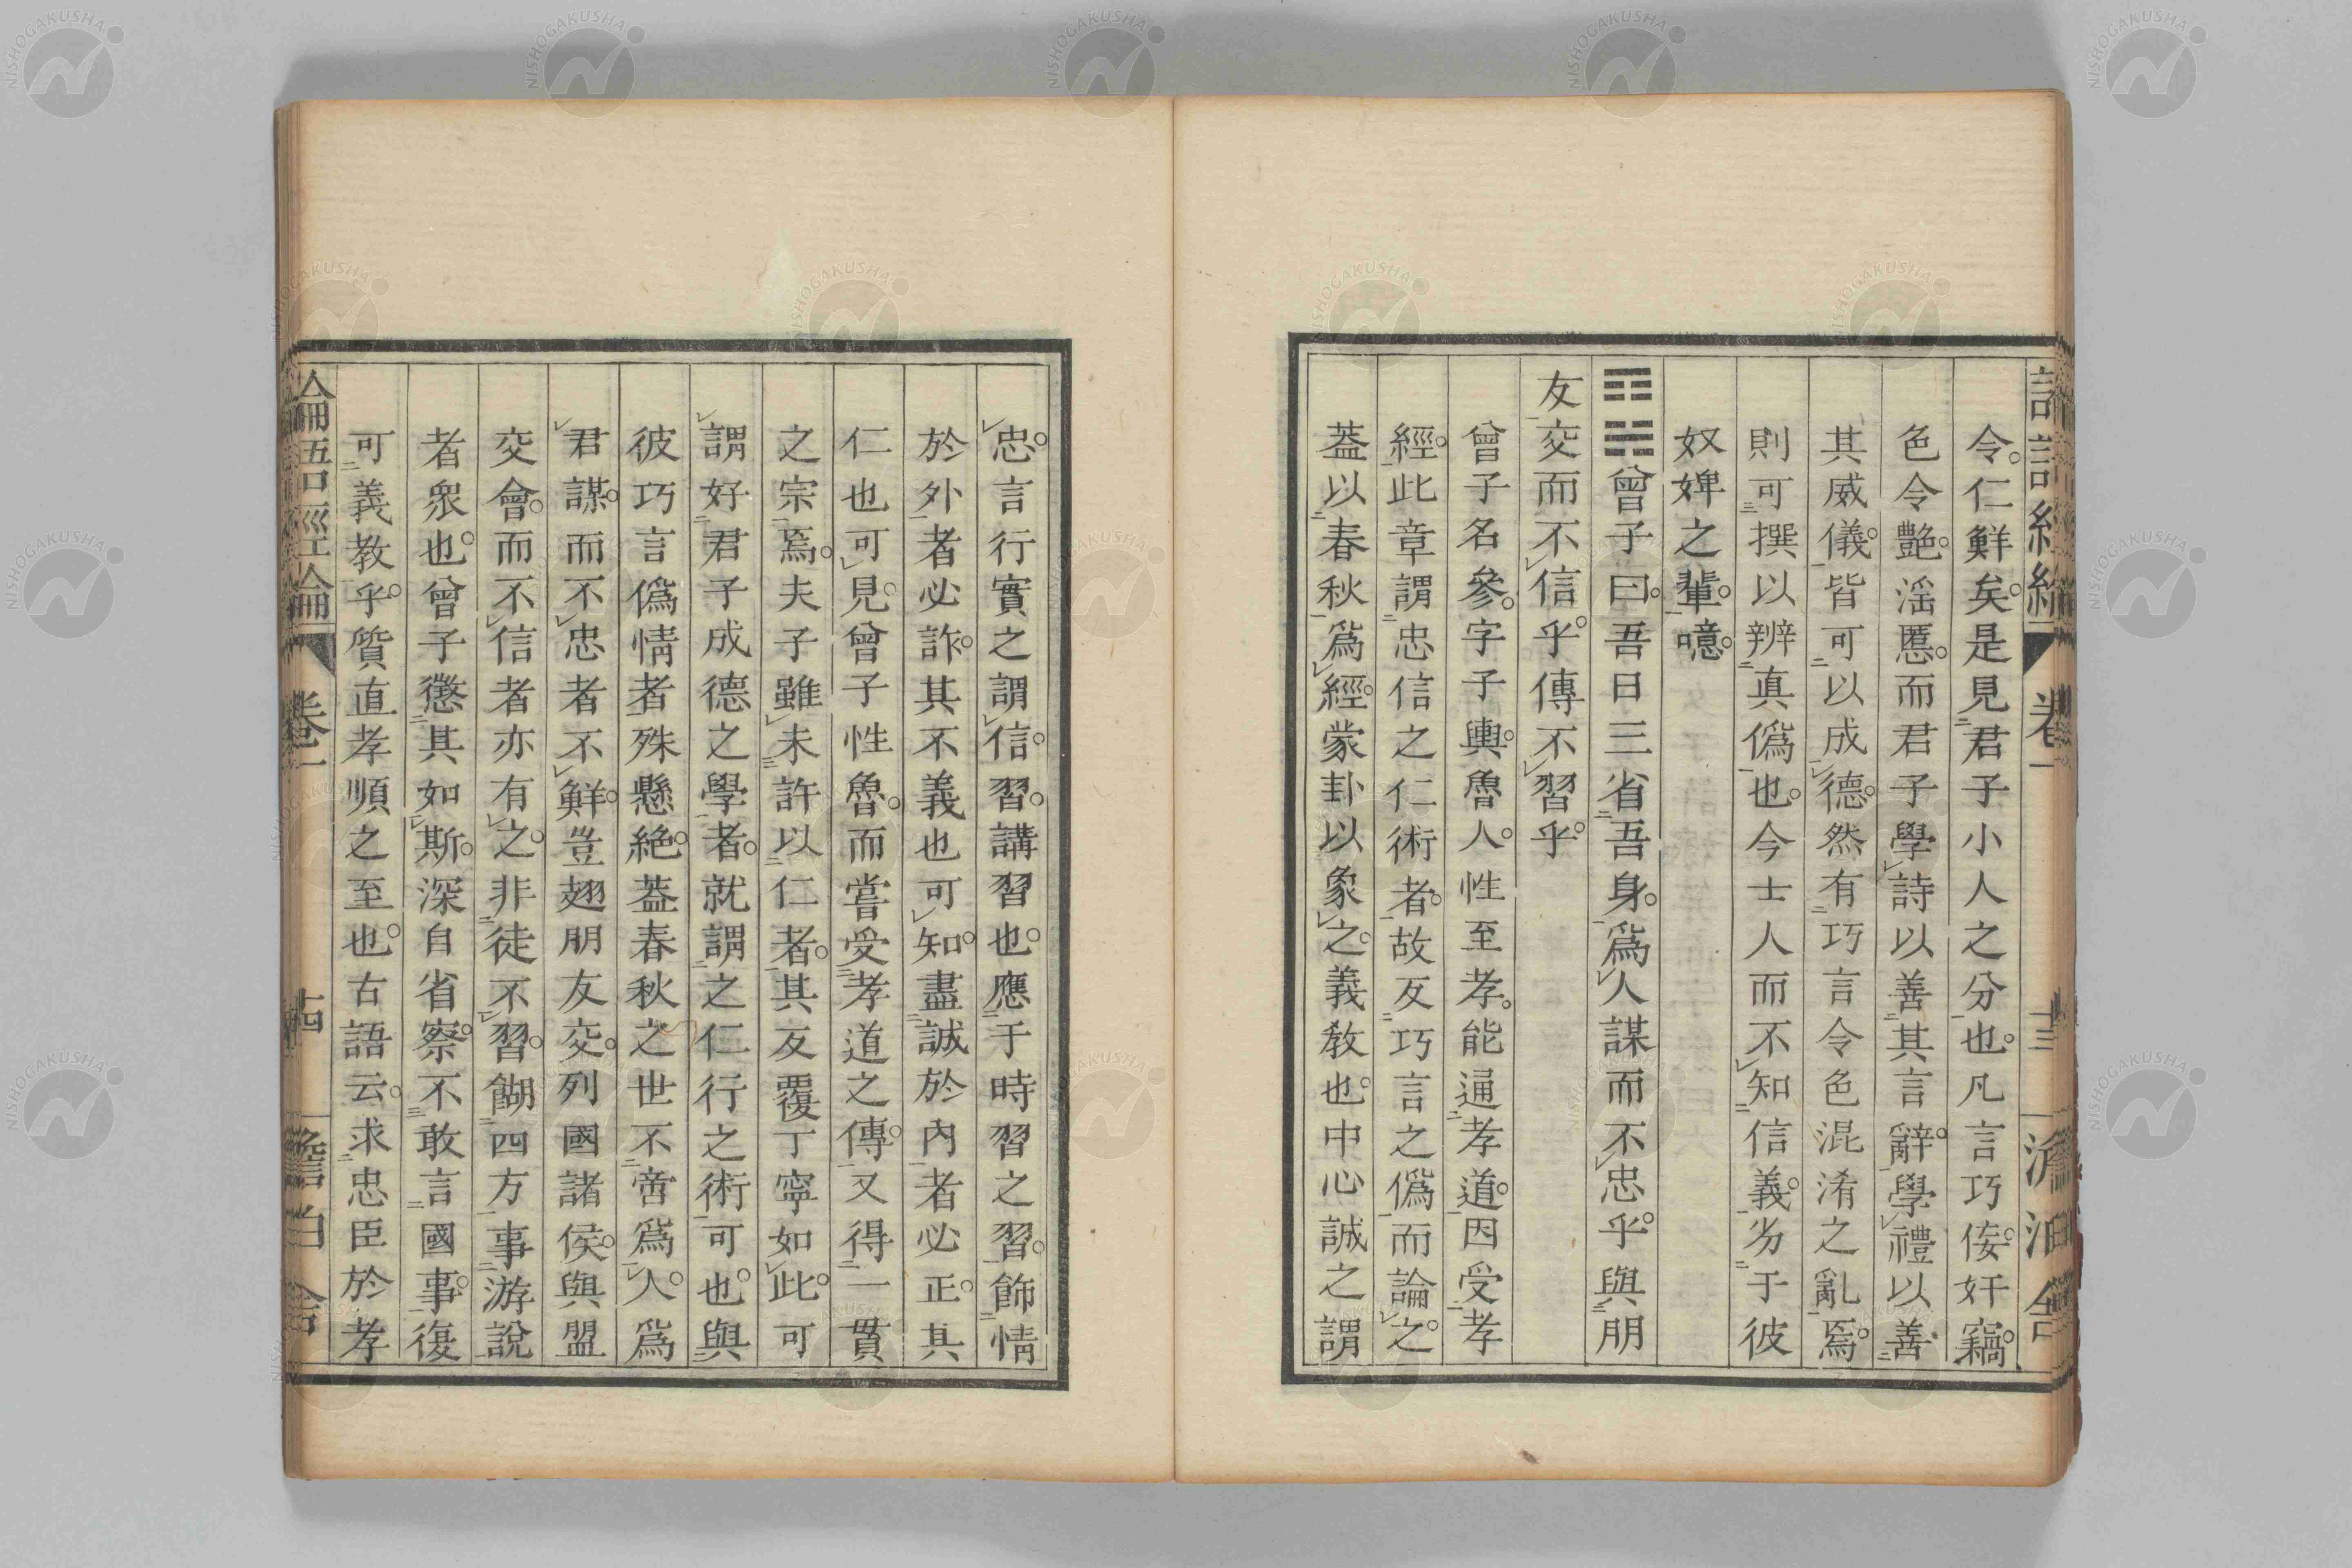 令。仁鮮矣。是見君子小人之分也。凡言巧侫。奸竊。
色令艷。滛慝。而君子學詩以善其言辭。學禮以善
其威儀。皆可以成德。然有巧言令色混淆之亂焉。
則可撰以辨真僞也。今士人而不知信義。劣于彼
奴婢之輩。噫。
曾子曰。吾日三省吾身。爲人謀而不忠乎。與朋
友交而不信乎。傳不習乎。
曾子名參。字子輿。魯人。性至孝。能通孝道。因受孝
經。此章謂忠信之仁術者。故反巧言之僞而論之。
葢以春秋爲經。蒙卦以象之。義敎也。中心誠之謂
忠。言行實之謂信。習。講習也。應于時習之習。飾情
於外者必詐。其不義也可知。盡誠於內者必正。其
仁也可見。曾子性魯。而嘗受孝道之傳。又得一貫
之宗焉。夫子雖未許以仁者。其反覆丁寧如此。可
謂好君子成德之學者。就謂之仁行之術可也。與
彼巧言僞情者殊懸絶。葢春秋之世不啻爲人。爲
君謀。而不忠者不鮮。豈翅朋友交。列國諸侯。與盟
交會。而不信者亦有之。非徒不習。餬四方事游說
者衆也。曾子懲其如斯。深自省察。不敢言國事。復
可義教乎。質直孝順之至也。古語云。求忠臣於孝
論語經論
卷一
十四
澹泊舍
卷一
十三
澹泊舍